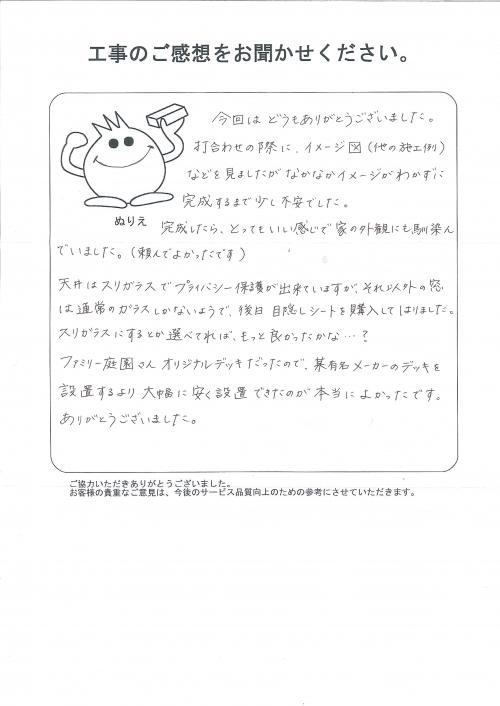 工事のご感想をお聞かせください。
今回は どうもありがとうございました。
打合わせの際に、イメージ図(他の施工例)
などを見ましたがなかなかイメージがわかずに
完成するまで少し不安でした。
ぬりえ
完成したら、とってもいい感じで家の外観にも馴染ん
でいました。(頼んでよかったです)
天井はスリガラスでプライバシー保護が出来ていますが、それ以外の窓
は通常のガラスしかないようで、後日 目隠しシートを購入してはりました。
スリガラスにするとか選べてれば、もっと良かったかな…?
ファミリー庭園さん オリジナルデッキだったので、某有名メーカーのデッキを
設置するより 大幅に安く設置できたのが本当によかったです。
ありがとうございました。
ご協力いただきありがとうございました。
お客様の貴重なご意見は、今後のサービス品質向上のための参考にさせていただきます。